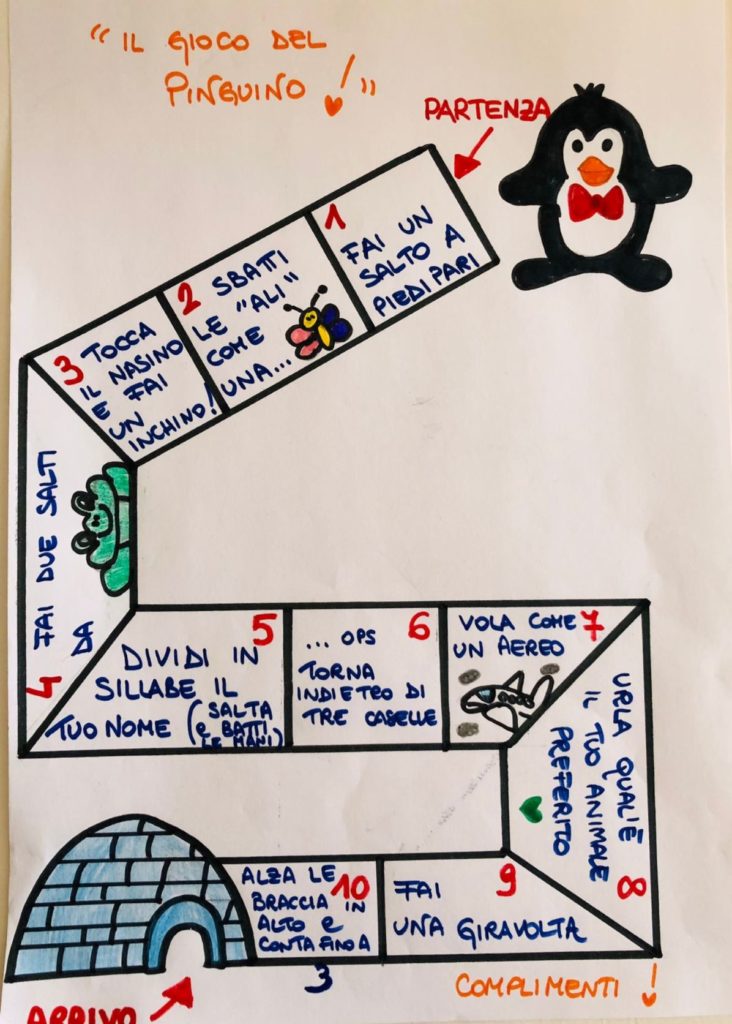 "IL GIOCO DEL
PINGUINO!"
PARTENZA
1
FAI UN
SALTO A
PIEDI PARI
2 SBATTI
LE "ALI"
COME
UNA...
3 TOCCA
IL NASINO
E FAI
UN
INCHINO!
4 FAI DUE SALTI
DA
5
DIVIDI IN
SILLABE IL
TUO NOME (SALTA
e BATTI
LE MANI)
6
... OPS
TORNA
INDIETRO DI
TRE CASELLE
7
VOLA COME
UN AEREO
8
URLA QUAL'È
IL TUO ANIMALE
PREFERITO
9
FAI
UNA GIRAVOLTA
10
ALZA LE
BRACCIA IN
ALTO E
CONTA FINO A
3
COMPLIMENTI!
ARRIVO